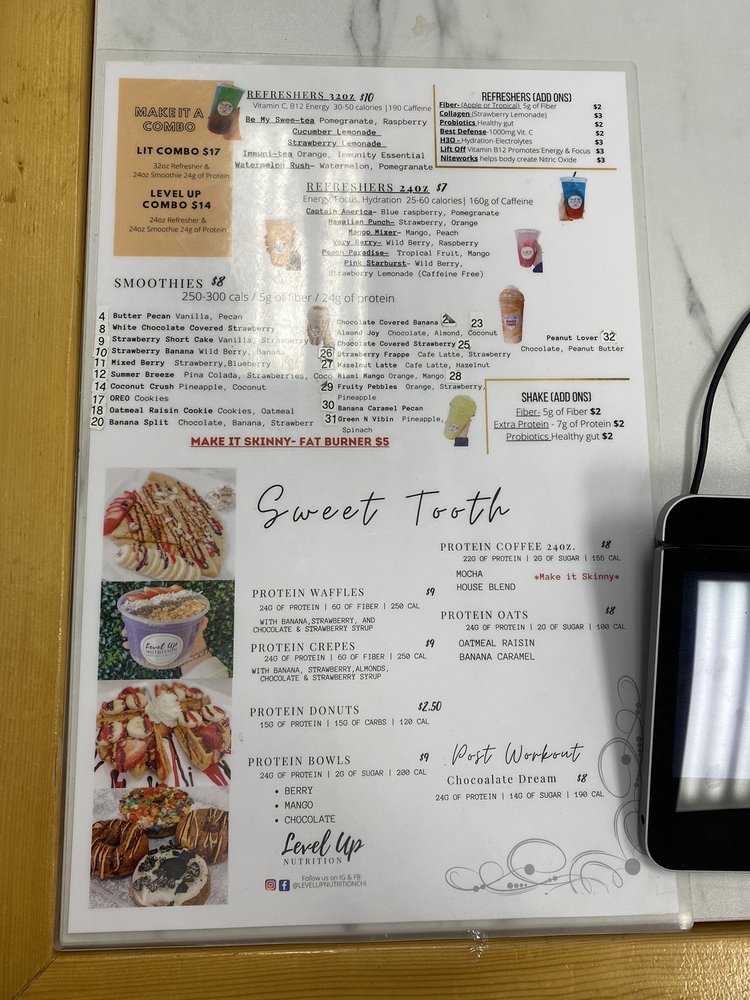 MAKE IT A
COMBO
LIT COMBO $17
32oz Refresher &
24oz Smoothie 24g of Protein
LEVEL UP
COMBO $14
24oz Refresher &
24oz Smoothie 24g of Protein
REFRESHERS 32OZ $10
Vitamin C, B12 Energy 30-50 calories |190 Caffeine
Be My Swee-tea Pomegranate, Raspberry
Cucumber Lemonade
Strawberry Lemonade
Immuni-tea Orange, Immunity Essential
Watermelon Rush- Watermelon, Pomegranate
REFRESHERS (ADD ONS)
Fiber- (Apple or Tropical) 5g of Fiber $2
Collagen (Strawberry Lemonade) $3
Probiotics Healthy gut $2
Best Defense 1000mg Vit. C $2
H3O - Hydration-Electrolytes $3
Lift Off Vitamin B12 Promotes Energy & Focus $3
Niteworks helps body create Nitric Oxide $3
REFRESHERS 24OZ $7
Energy, Focus, Hydration 25-60 calories| 160g of Caffeine
Captain America- Blue raspberry, Pomegranate
Hawaiian Punch- Strawberry, Orange
Mango Mixer- Mango, Peach
Very Berry- Wild Berry, Raspberry
Peach Paradise- Tropical Fruit, Mango
Pink Starburst- Wild Berry,
Strawberry Lemonade (Caffeine Free)
SMOOTHIES $8
250-300 cals / 5g of fiber / 24g of protein
4 Butter Pecan Vanilla, Pecan
8 White Chocolate Covered Strawberry
9 Strawberry Short Cake Vanilla, Strawberry
10 Strawberry Banana Wild Berry, Banana
11 Mixed Berry Strawberry,Blueberry
12 Summer Breeze Pina Colada, Strawberries, Coco
14 Coconut Crush Pineapple, Coconut
17 OREO Cookies
18 Oatmeal Raisin Cookie Cookies, Oatmeal
20 Banana Split Chocolate, Banana, Strawberr
Chocolate Covered Banana 23
Almond Joy Chocolate, Almond, Coconut
Chocolate Covered Strawberry 25
26 Strawberry Frappe Cafe Latte, Strawberry
27 Hazelnut Latte Cafe Latte, Hazelnut
Miami Mango Orange, Mango 28
29 Fruity Pebbles Orange, Strawberry,
Pineapple
30 Banana Caramel Pecan
31 Green N Vibin Pineapple,
Spinach
Peanut Lover 32
Chocolate, Peanut Butter
MAKE IT SKINNY- FAT BURNER $5
SHAKE (ADD ONS)
Fiber- 5g of Fiber $2
Extra Protein - 7g of Protein $2
Probiotics Healthy gut $2
Sweet Tooth
PROTEIN WAFFLES $9
24G OF PROTEIN | 6G OF FIBER | 250 CAL
WITH BANANA,STRAWBERRY, AND
CHOCOLATE & STRAWBERRY SYRUP
PROTEIN CREPES $9
24G OF PROTEIN | 6G OF FIBER | 250 CAL
WITH BANANA, STRAWBERRY,ALMONDS,
CHOCOLATE & STRAWBERRY SYRUP
PROTEIN DONUTS $2.50
15G OF PROTEIN | 15G OF CARBS | 120 CAL
PROTEIN BOWLS $9
24G OF PROTEIN | 2G OF SUGAR | 200 CAL
• BERRY
• MANGO
• CHOCOLATE
PROTEIN COFFEE 24OZ. $8
22G OF PROTEIN | 2G OF SUGAR | 155 CAL
MOCHA
*Make it Skinny*
HOUSE BLEND
PROTEIN OATS $8
24G OF PROTEIN | 2G OF SUGAR | 100 CAL
OATMEAL RAISIN
BANANA CARAMEL
Post Workout
Chocoalate Dream $8
24G OF PROTEIN | 14G OF SUGAR | 190 CAL
Level Up
NUTRITION
Level Up
NUTRITION
Follow us on IG & FB
@LEVELUPNUTRITIONCHI